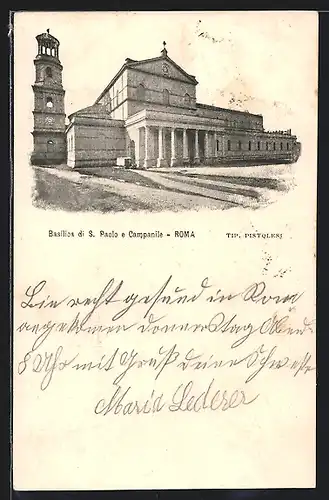 Basilica di S. Paolo e Campanile - ROMA
TIP. PISTOLESI
Bin recht gesund in Rom
angekommen donnerstag Abend
8 Uhr mit Gruß deine Schwester
Maria Lederer